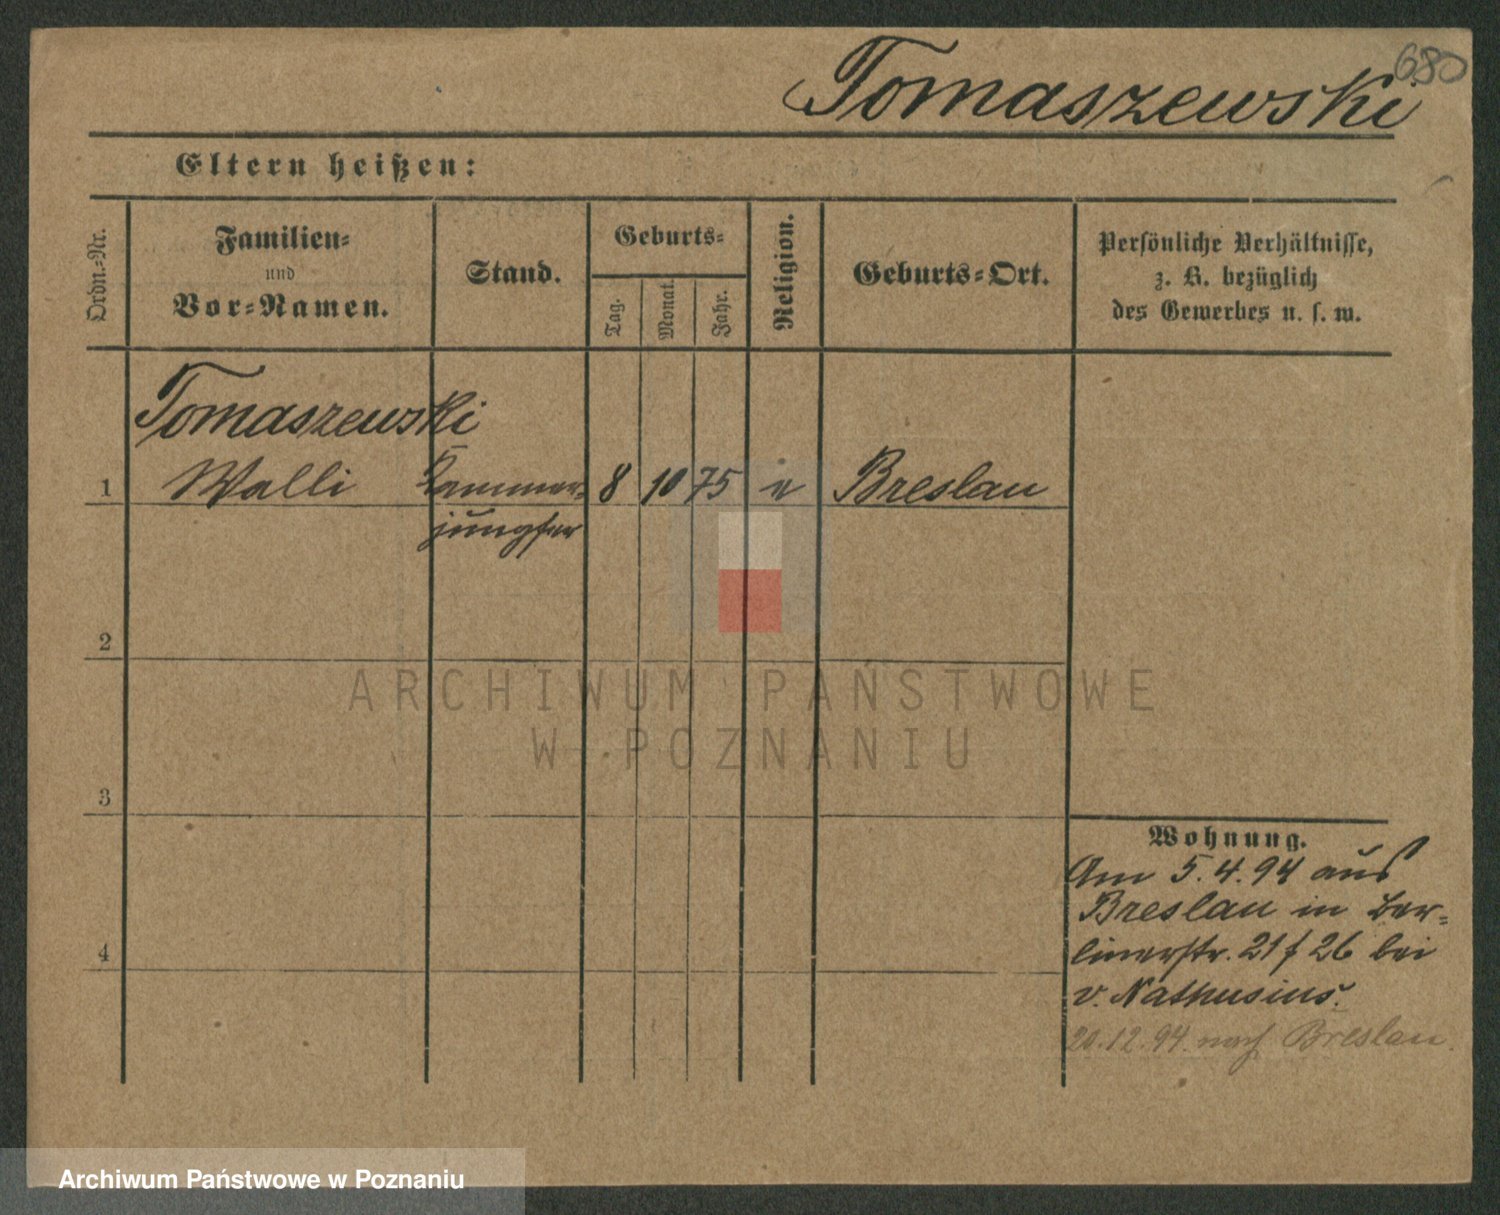 680
Tomaszewski
Eltern heißen:
Ordn.-Nr.
Familien-
und
Vor-Namen.
Stand.
Geburts-
Tag.
Monat.
Jahr.
Religion.
Geburts-Ort.
Persönliche Verhältnisse,
z. B. bezüglich
des Gewerbes u. s. w.
Tomaszewski
1 Walli Kammer- 8 10 75 Breslau
jungfer
2
3
4
ARCHIWUM PAŃSTWOWE
W POZNANIU
Wohnung.
Am 5.4.94 aus
Breslau in Ber-
linerstr. 21 f 26 bei
v. Nathusius.
20.12.94. nach Breslau.
Archiwum Państwowe w Poznaniu